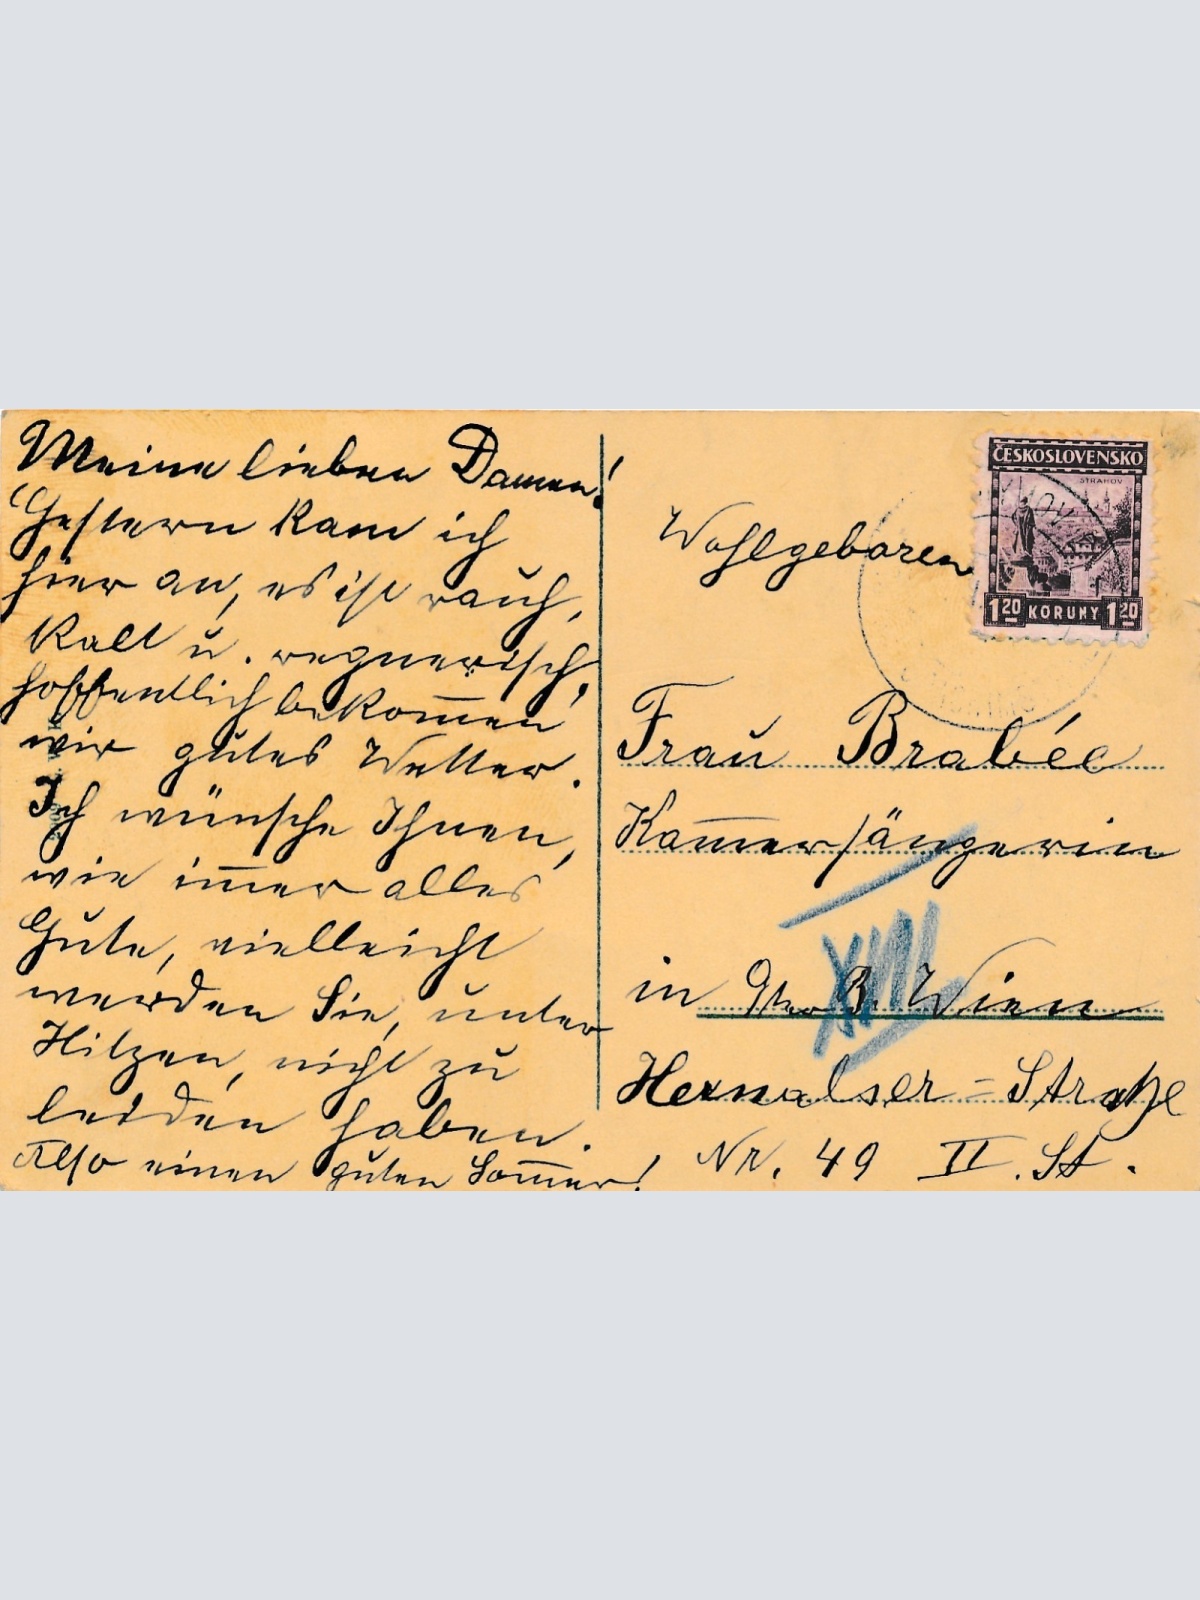 Meine lieben Damen!
Gestern kam ich
hier an, es ist rauh,
kalt u. regnerisch,
hoffentlich bekom̅en
wir gutes Wetter.
Ich wünsche Ihnen,
wie im̅er alles
Gute, vielleicht
werden Sie, unter
Hitzen, nicht zu
leiden haben.
Also einen guten Som̅er!
ČESKOSLOVENSKO
STRAHOV
1 20 KORUNY 1 20
Wohlgeboren
Frau Brabéc
Kam̅ersängerin
XVII
in Wien
Hernalser=Straße
Nr. 49 II. St.